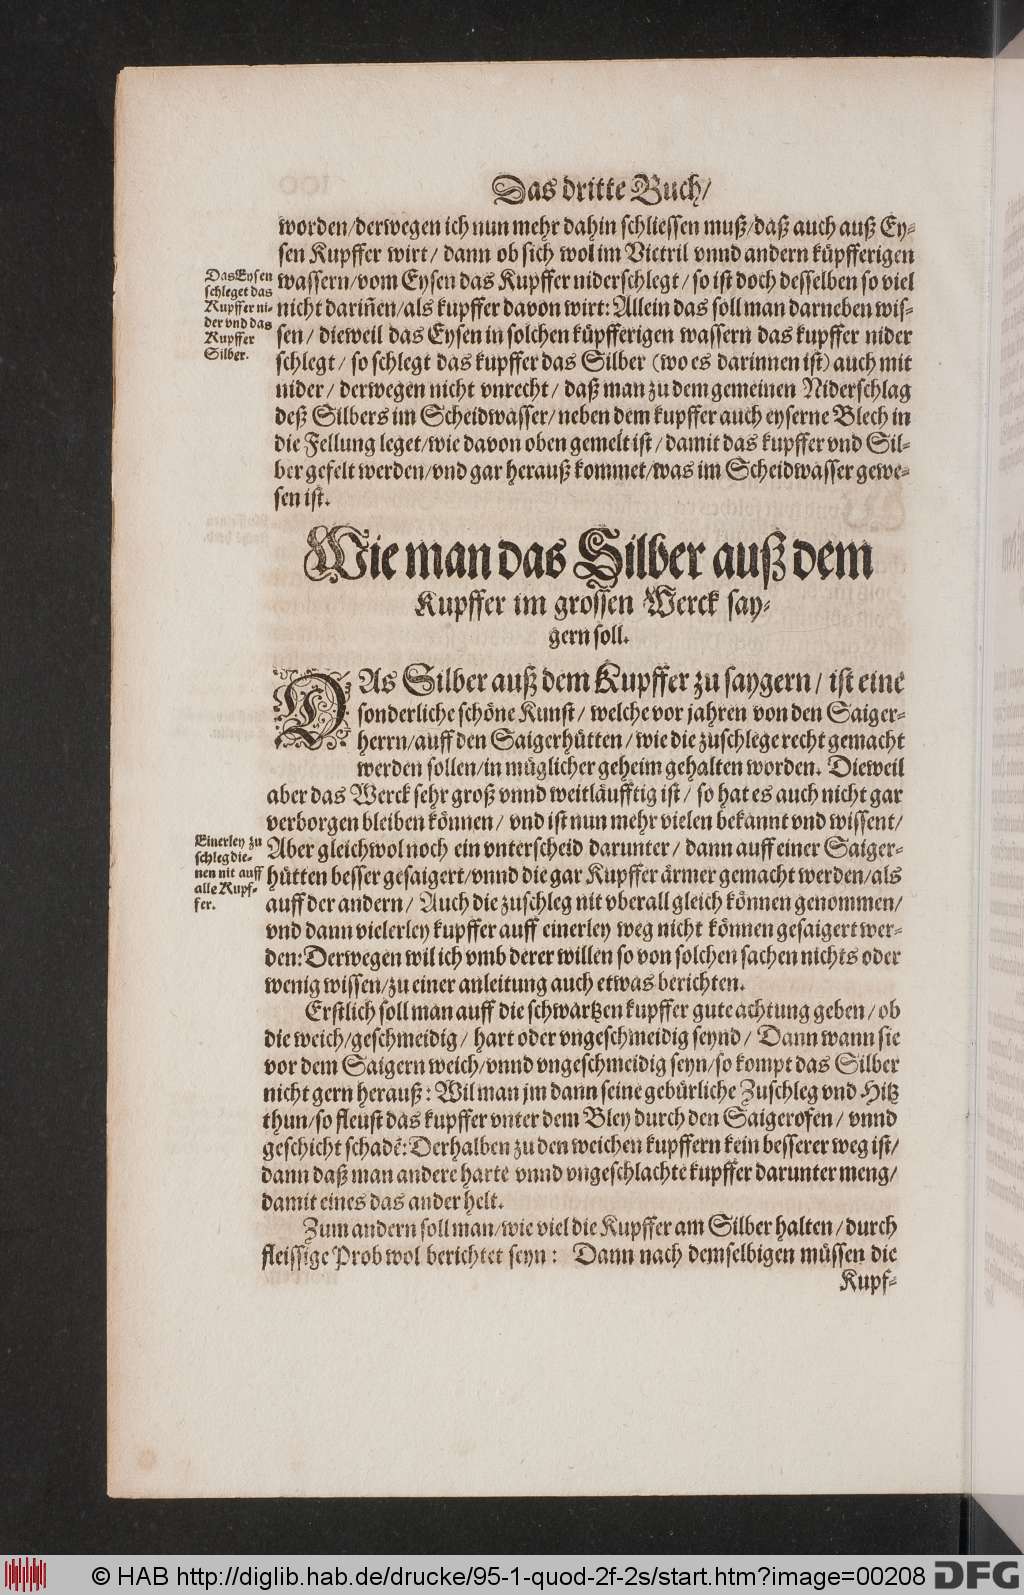 Das dritte Buch/
worden/derwegen ich nun mehr dahin schliessen muß/daß auch auß Ey-
sen Kupffer wirt/ dann ob sich wol im Victril vnnd andern küpfferigen
wassern/vom Eysen das Kupffer niderschlegt/ so ist doch desselben so viel
nicht dariñen/als kupffer davon wirt: Allein das soll man darneben wis-
sen/ dieweil das Eysen in solchen küpfferigen wassern das kupffer nider
schlegt/ so schlegt das kupffer das Silber (wo es darinnen ist) auch mit
nider/ derwegen nicht vnrecht/ daß man zu dem gemeinen Niderschlag
deß Silbers im Scheidwasser/neben dem kupffer auch eyserne Blech in
die Fellung leget/wie davon oben gemelt ist/ damit das kupffer vnd Sil-
ber gefelt werden/vnd gar herauß kommet/was im Scheidwasser gewe-
sen ist.
Das Eysen
schleget das
Kupffer ni-
der vnd das
Kupffer
Silber.
Wie man das Silber auß dem
Kupffer im grossen Werck say-
gern soll.
DAs Silber auß dem Kupffer zu saygern/ ist eine
sonderliche schöne Kunst/ welche vor jahren von den Saiger-
herrn/auff den Saigerhütten/wie die zuschlege recht gemacht
werden sollen/in müglicher geheim gehalten worden. Dieweil
aber das Werck sehr groß vnnd weitläufftig ist/ so hat es auch nicht gar
verborgen bleiben können/ vnd ist nun mehr vielen bekannt vnd wissent/
Aber gleichwol noch ein vnterscheid darunter/ dann auff einer Saiger-
hütten besser gesaigert/vnnd die gar Kupffer ärmer gemacht werden/als
auff der andern/ Auch die zuschleg nit vberall gleich können genommen/
vnd dann vielerley kupffer auff einerley weg nicht können gesaigert wer-
den: Derwegen wil ich vmb derer willen so von solchen sachen nichts oder
wenig wissen/zu einer anleitung auch etwas berichten.
Einerley zu
schleg die-
nen nit auff
alle Kupf-
fer.
Erstlich soll man auff die schwartzen kupffer gute achtung geben/ ob
die weich/geschmeidig/ hart oder vngeschmeidig seynd/ Dann wann sie
vor dem Saigern weich/vnnd vngeschmeidig seyn/so kompt das Silber
nicht gern herauß: Wil man jm dann seine gebürliche Zuschleg vnd Hitz
thun/so fleust das kupffer vnter dem Bley durch den Saigerofen/ vnnd
geschicht schadẽ: Derhalben zu den weichen kupffern kein besserer weg ist/
dann daß man andere harte vnnd vngeschlachte kupffer darunter meng/
damit eines das ander helt.
Zum andern soll man/wie viel die Kupffer am Silber halten/durch
fleissige Prob wol berichtet seyn: Dann nach demselbigen müssen die
Kupf-
© HAB http://diglib.hab.de/drucke/95-1-quod-2f-2s/start.htm?image=00208
DFG